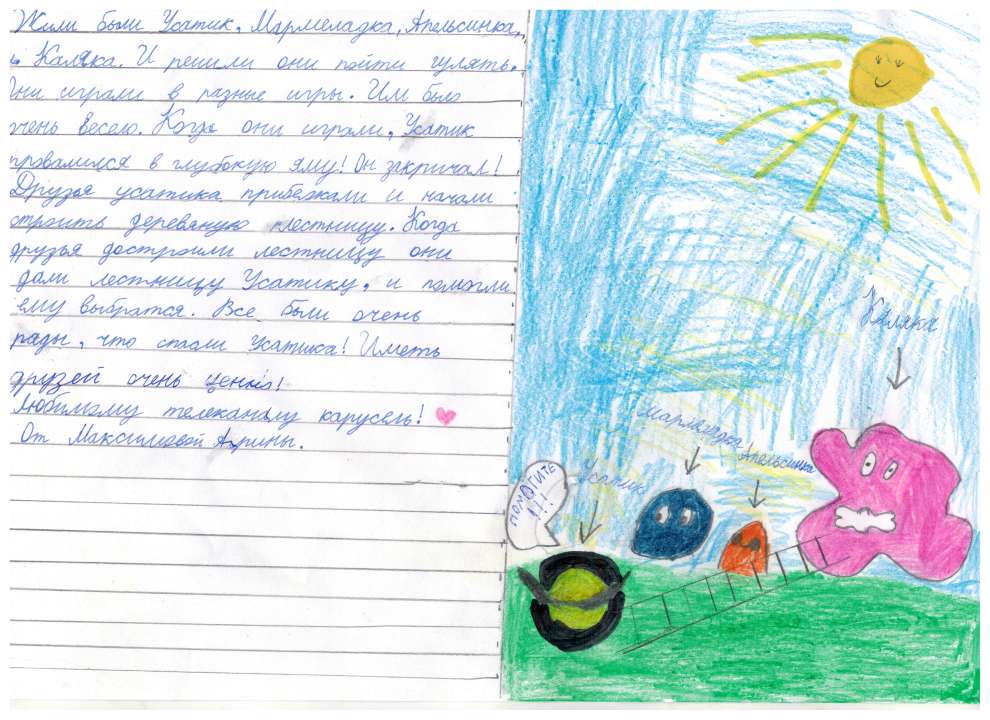 Жили были Усатик, Мармеладка, Апельсинка,
и Каляка. И решили они пойти гулять.
Они играли в разные игры. Им было
очень весело. Когда они играли, Усатик
провалился в глубокую яму! Он закричал!
Друзья усатика прибежали и начали
строить деревяную лестницу. Когда
друзья достроили лестницу они
дали лестницу Усатику, и помогли
ему выбратся. Все были очень
рады, что спасли Усатика! Иметь
друзей очень ценно!
Любимому телеканалу карусель!
От Максимовой Арины.
Каляка
Мармеладка
Апельсинка
Усатик
ПОМОГИТЕ
!!!